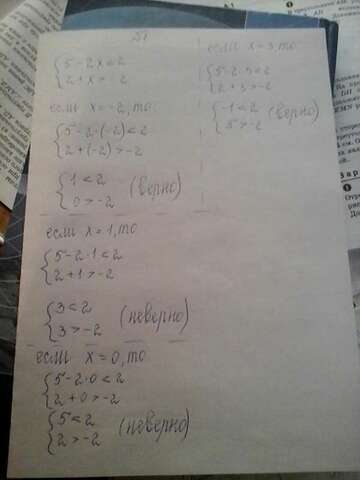 57
{5-2x<2
{2+x>-2
если x=-2, то
{5-2·(-2)<2
{2+(-2)>-2
{1<2
{0>-2 (верно)
если x=1, то
{5-2·1<2
{2+1>-2
{3<2
{3>-2 (неверно)
если x=0, то
{5-2·0<2
{2+0>-2
{5<2
{2>-2 (неверно)
если x=3, то
{5-2·3<2
{2+3>-2
{-1<2
{5>-2 (верно)